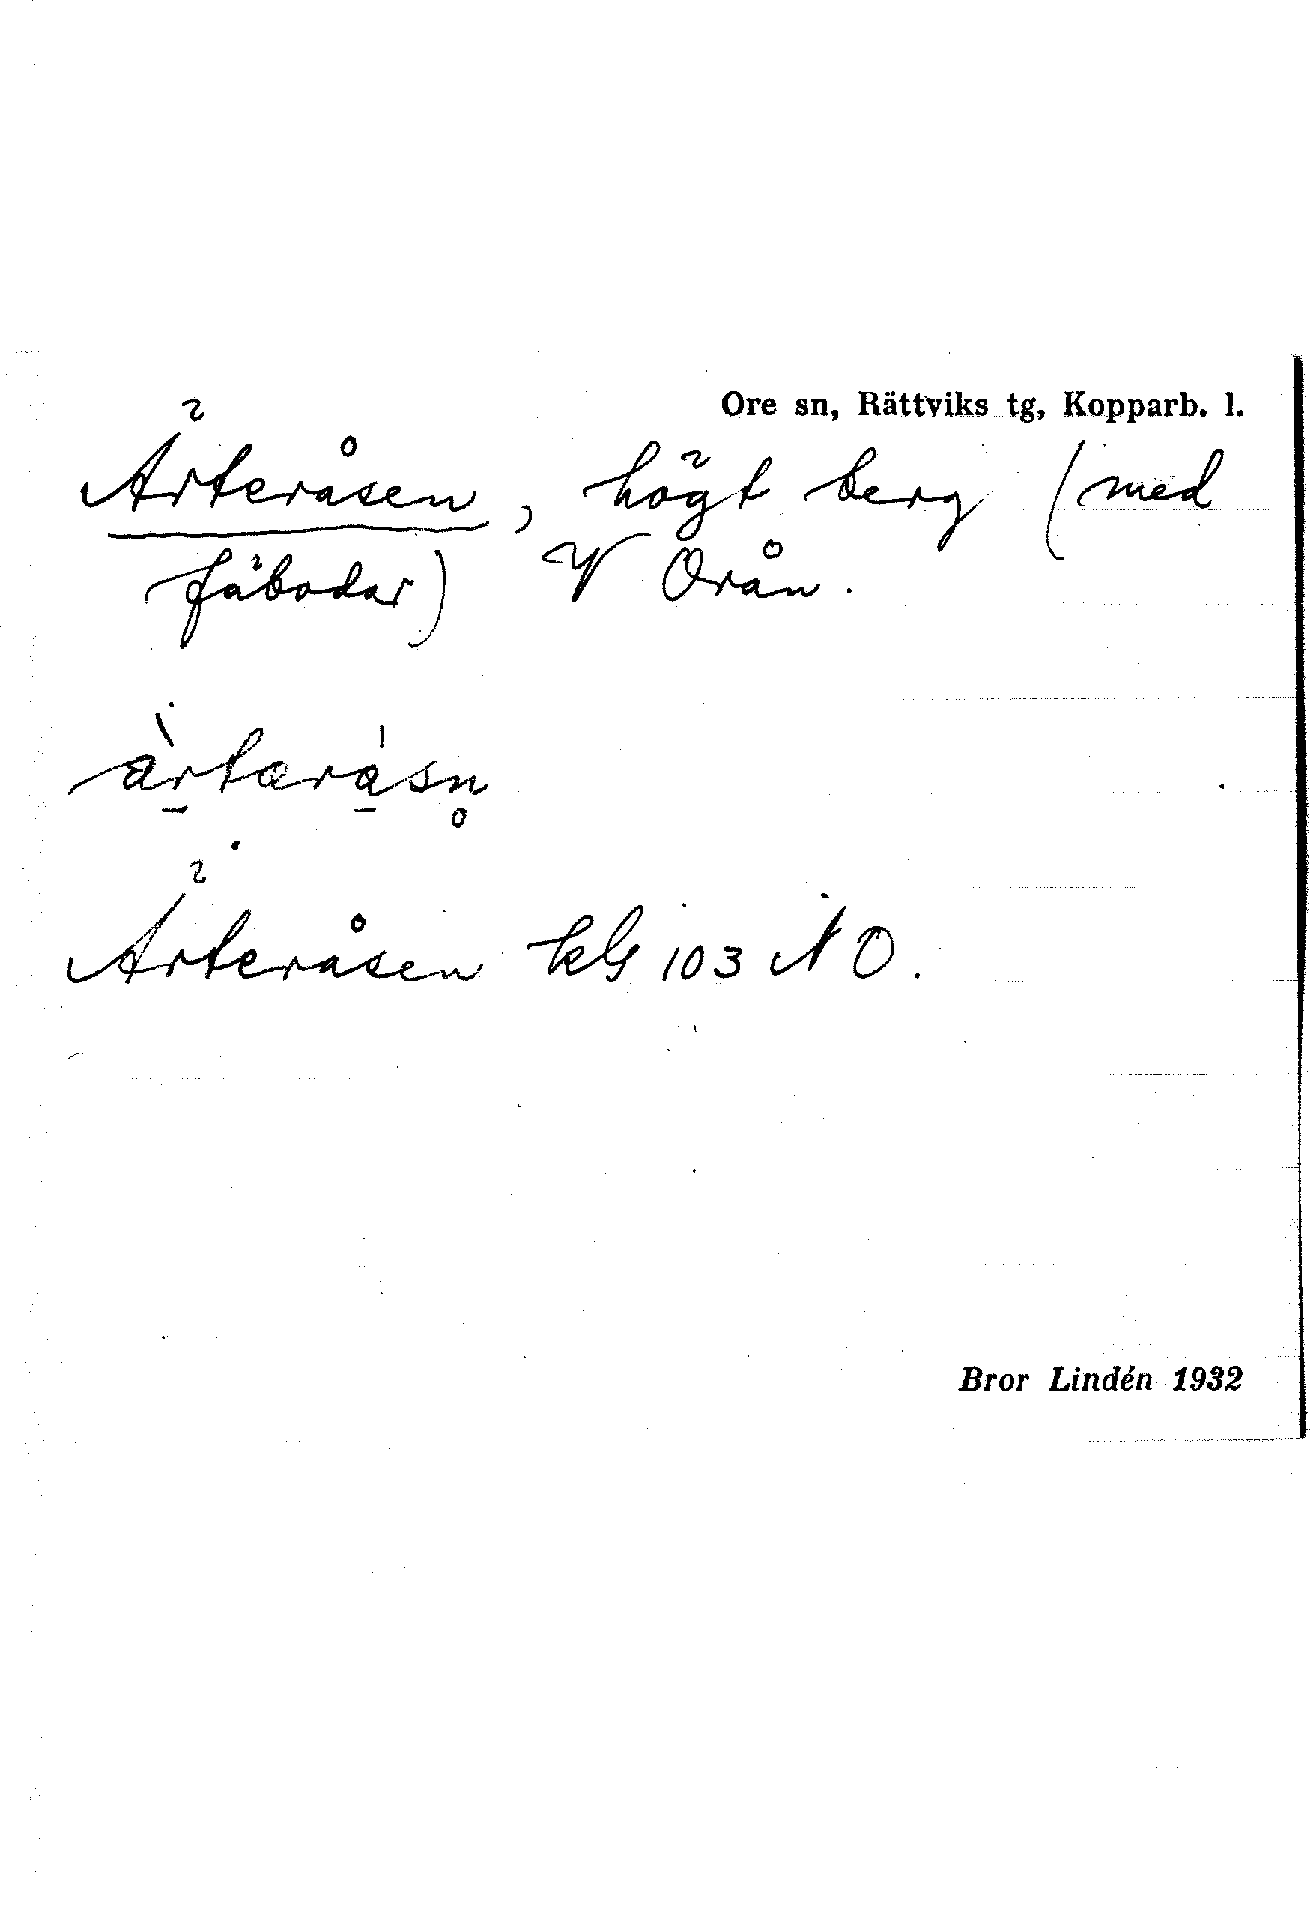 Ore sn, Rättviks tg, Kopparb. l.
Ärteråsen, högt berg (med
fäbodar) V Orån.
ärtæråsn̥
Ärteråsen kbl 103 NO.
Bror Lindén 1932